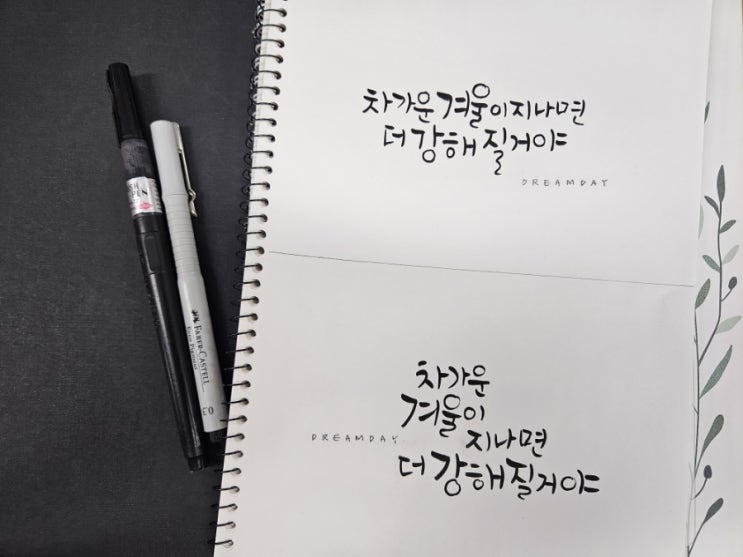 차가운 겨울이 지나면
더 강해질거야
DREAMDAY
차가운
겨울이
지나면
DREAMDAY
더 강해질거야
PEN
FABER-CASTELL